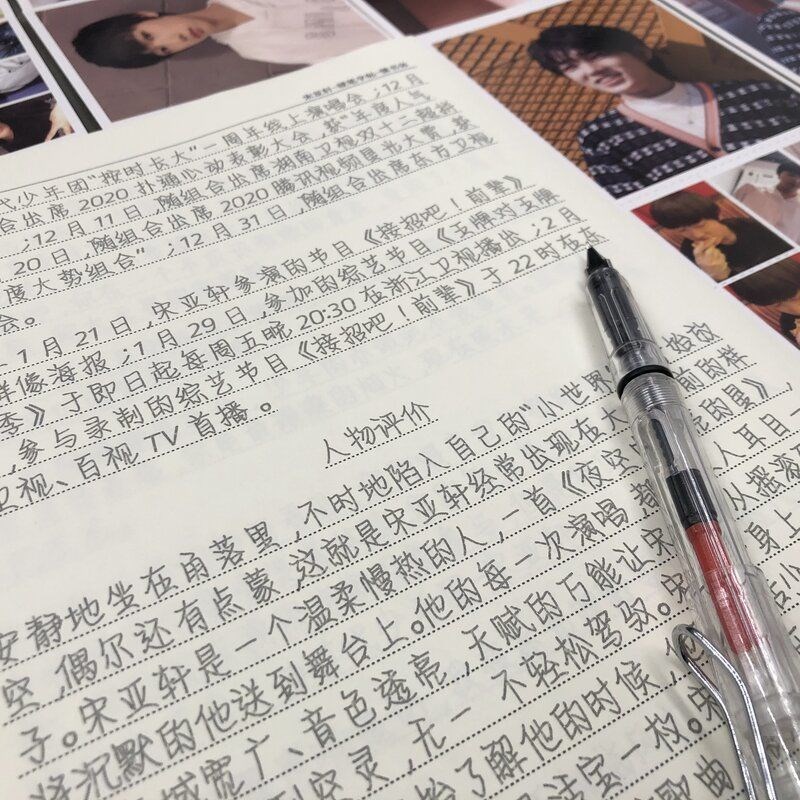 宋亚轩
代少年团“按时长大”一周年线上演唱会；12月
合出席2020扑通心动表彰大会，获“年度人气
；12月11日，随组合出席湖南卫视双十二超拼
20日，随组合出席2020腾讯视频星光大赏，获
度大势组合”；12月31日，随组合出席东方卫视
会。
1月21日，宋亚轩参演的节目《接招吧！前辈》
群像海报；1月29日，参加的综艺节目《王牌对王牌
季》于即日起每周五晚20:30在浙江卫视播出；2月
，参与录制的综艺节目《接招吧！前辈》于22时在东
卫视、百视TV首播。
人物评价
安静地坐在角落里，不时地陷入自己的“小世界 始放
空，偶尔还有点蒙，这就是宋亚轩经常出现在大 前的样
子。宋亚轩是一个温柔慢热的人，一首《夜空 的星》，
将沉默的他送到舞台上。他的每一次演唱 人耳目一
域宽广、音色透亮，天赋的万能让宋 从摇滚
到空灵，无一不轻松驾驭。宋 身上
始了解他的时候，他
活宝一枚。宋
歌曲